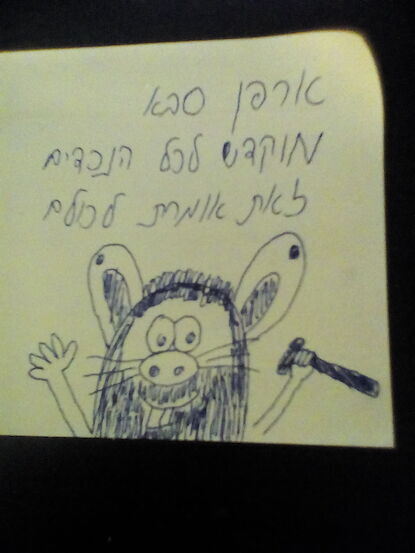 ארפן סבא
מוקדש לכל הנכדים
זאת אומרת לכולם